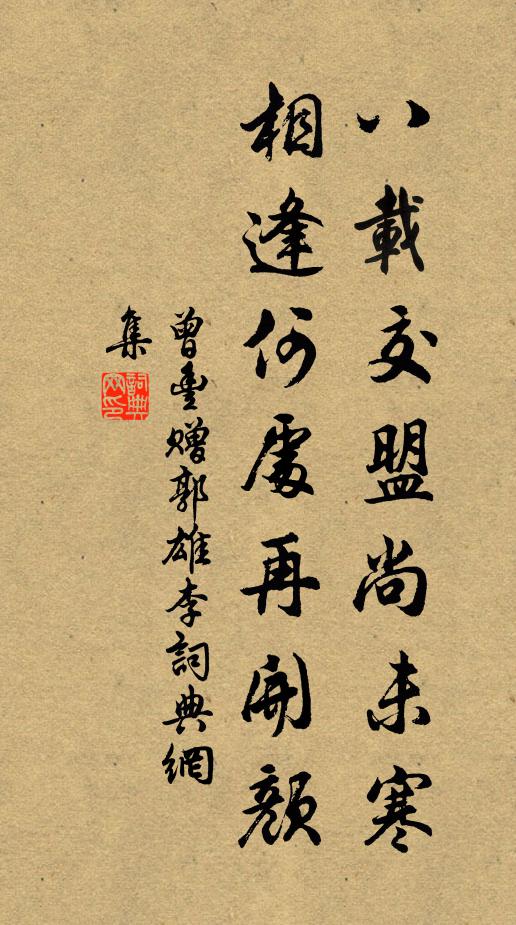 八載交盟尚未寒
相逢何處再開顏
曾豐贈郭雄李詞典網
集
詞典